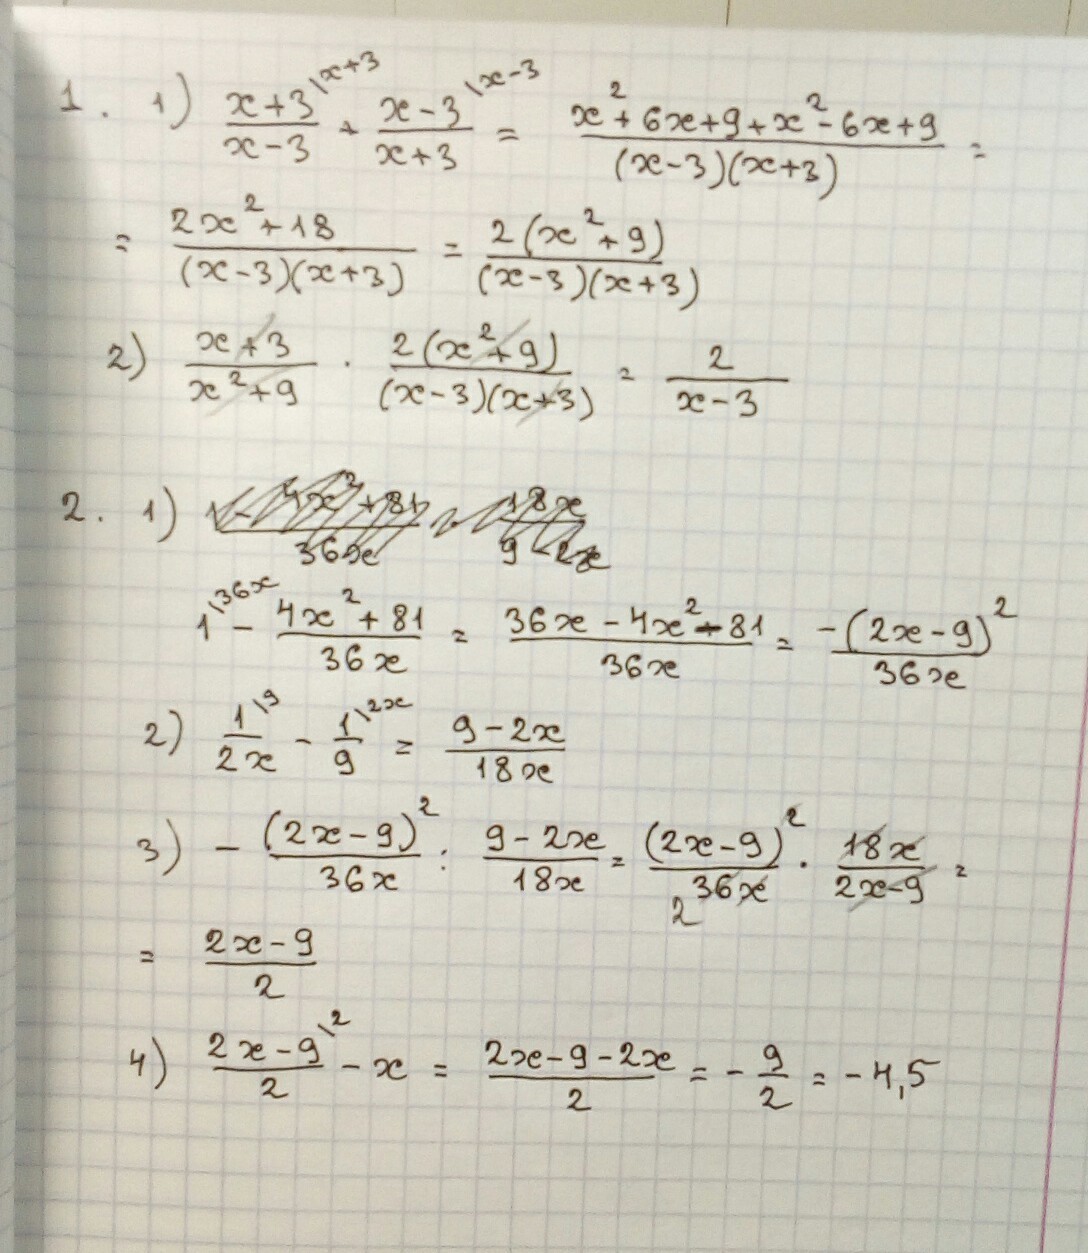 1. 1) \frac{x+3}{x-3}^{\x+3} + \frac{x-3}{x+3}^{\x-3} = \frac{x^2+6x+9+x^2-6x+9}{(x-3)(x+3)} =
= \frac{2x^2+18}{(x-3)(x+3)} = \frac{2(x^2+9)}{(x-3)(x+3)}
2) \frac{x+3}{x^2+9} · \frac{2(x^2+9)}{(x-3)(x+3)} = \frac{2}{x-3}
2. 1)
1^{\36x} - \frac{4x^2+81}{36x} = \frac{36x-4x^2-81}{36x} = \frac{-(2x-9)^2}{36x}
2) \frac{1}{2x}^{\9} - \frac{1}{9}^{\2x} = \frac{9-2x}{18x}
3) - \frac{(2x-9)^2}{36x} : \frac{9-2x}{18x} = \frac{(2x-9)^2}{_2 36x} · \frac{18x}{2x-9} =
= \frac{2x-9}{2}
4) \frac{2x-9}{2}^{\2} - x = \frac{2x-9-2x}{2} = -\frac{9}{2} = -4,5